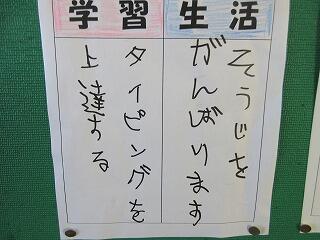 生活
そうじを
がんばります
学習
タイピングを
上達する